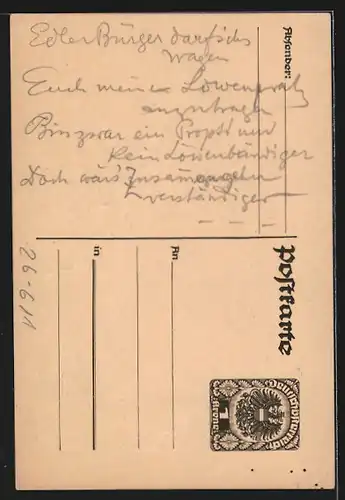 Edler Bürger darf ichs
wagen
Euch meine Löwenpratz
anzutragen
Bin zwar ein Propst und
kein Löwenbändiger
Doch wärs Zusammengehn
verständiger
Absender:
Postkarte
An
in
26-611
Deutschösterreich
1